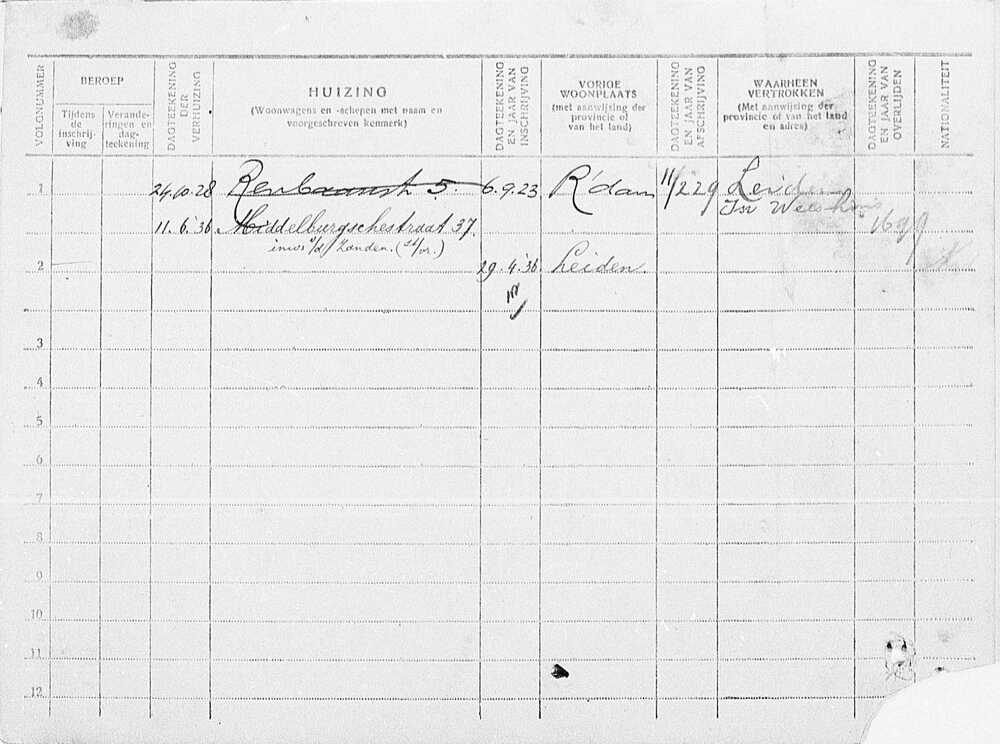 VOLGNUMMER
BEROEP
Tijdens de inschrijving
Verande-
ringen en
dag-
teekening
DAGTEEKENING
DER
VERHUIZING
HUIZING
(Woonwagens en -schepen met naam en
voorgeschreven kenmerk)
DAGTEEKENING
EN JAAR VAN
INSCHRIJVING
VORIGE
WOONPLAATS
(met aanwijzing der
provincie of
van het land)
DAGTEEKENING
EN JAAR VAN
AFSCHRIJVING
WAARHEEN
VERTROKKEN
(Met aanwijzing der
provincie of van het land
en adres)
DAGTEEKENING
EN JAAR VAN
OVERLIJDEN
NATIONALITEIT
1 24.10.28 5. 6.9.23 R'dam 11/2 29 Leiden
Isr Weeshuis
11.6.'36 Middelburgschestraat 37. 1699
inw. v/d Zanden.
2 29.4.'36 Leiden.
3
4
5
6
7
8
9
10
11
12